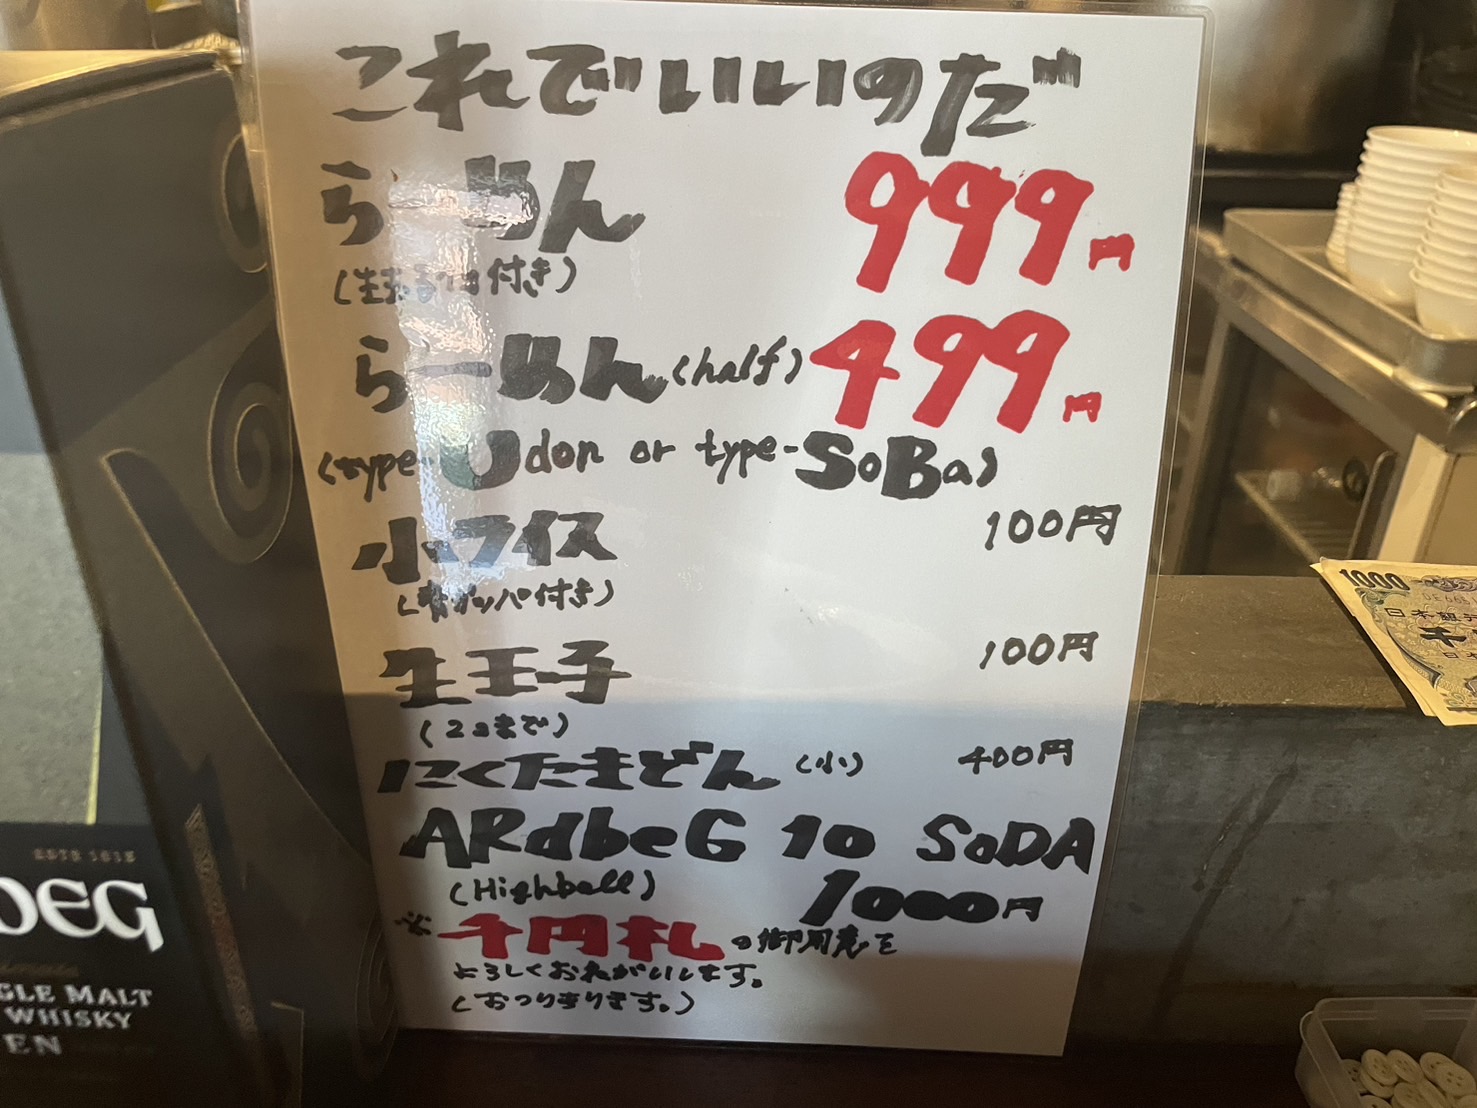 これでいいのだ
らーめん 999円
(生たまご付き)
らーめん(half) 499円
(type-Udon or type-SoBa)
小ライス 100円
(青カッパ付き)
生玉子 100円
(2コまで)
にくたまどん(小) 400円
ARdbeG 10 SoDA
(Highball) 1000円
※千円札の御用意を
よろしくおねがいします。
(おつりあります。)
ESTD 1815
DEG
GLE MALT
WHISKY
EN
1000
日本銀
千
日本